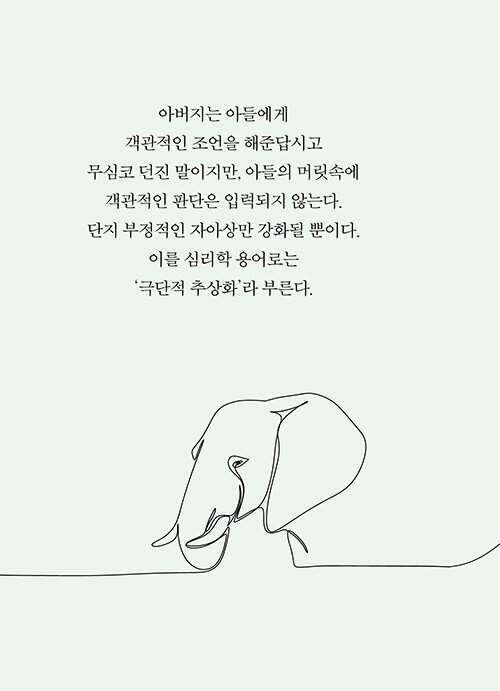 아버지는 아들에게
객관적인 조언을 해준답시고
무심코 던진 말이지만, 아들의 머릿속에
객관적인 판단은 입력되지 않는다.
단지 부정적인 자아상만 강화될 뿐이다.
이를 심리학 용어로는
‘극단적 추상화’라 부른다.